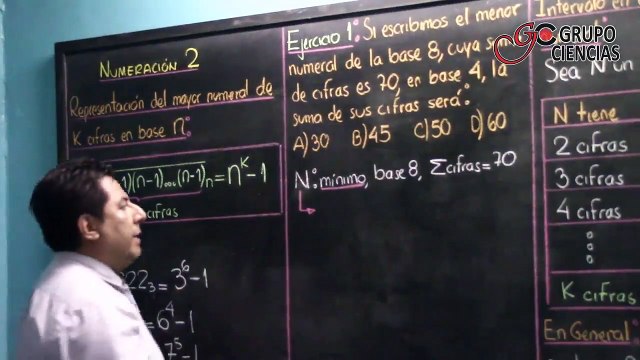 NUMERACIÓN 2
Representación del mayor numeral de
K cifras en base n:
1)(n-1)...(n-1)n = n^K - 1
cifras
222₃ = 3⁶-1
= 6⁴-1
7⁵-1
Ejercicio 1: Si escribimos el menor
numeral de la base 8, cuya
de cifras es 70, en base 4, la
suma de sus cifras será:
A) 30 B) 45 C) 50 D) 60
N: mínimo, base 8, Σcifras=70
GRUPO
CIENCIAS
Intervalo
Sea N un
N tiene
2 cifras
3 cifras
4 cifras
K cifras
En General: